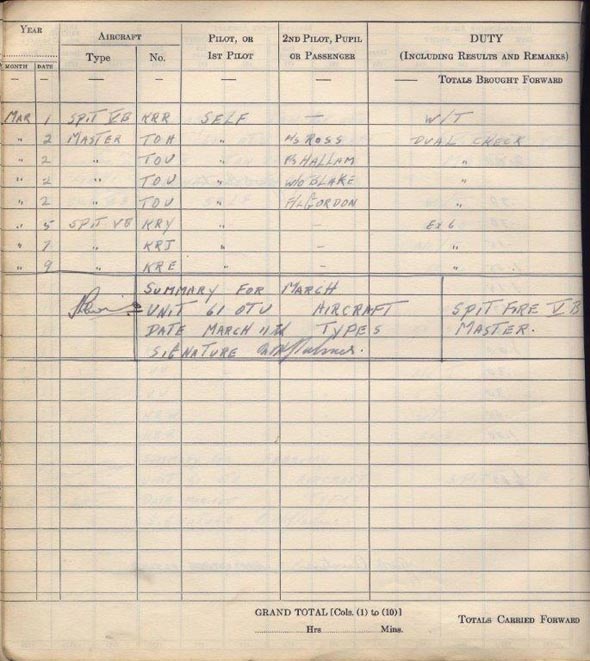 YEAR AIRCRAFT PILOT, OR 1ST PILOT 2ND PILOT, PUPIL OR PASSENGER DUTY (INCLUDING RESULTS AND REMARKS)
MONTH DATE Type No.
— — — — — — — TOTALS BROUGHT FORWARD
MAR 1 SPIT VB KRR SELF — W/T
" 2 MASTER TOH " F/S ROSS DUAL CHECK
" 2 " TOU " HALLAM "
" 2 " TOU " W/O BLAKE "
" 2 " TOU " GORDON "
" 5 SPIT VB KRY " — EX 6
" 7 " KRJ " — "
" 9 " KRE " — "
SUMMARY FOR MARCH
UNIT 61 OTU AIRCRAFT SPITFIRE VB
DATE MARCH 11th TYPES MASTER.
SIGNATURE
GRAND TOTAL [Cols. (1) to (10)]
Hrs. Mins.
TOTALS CARRIED FORWARD